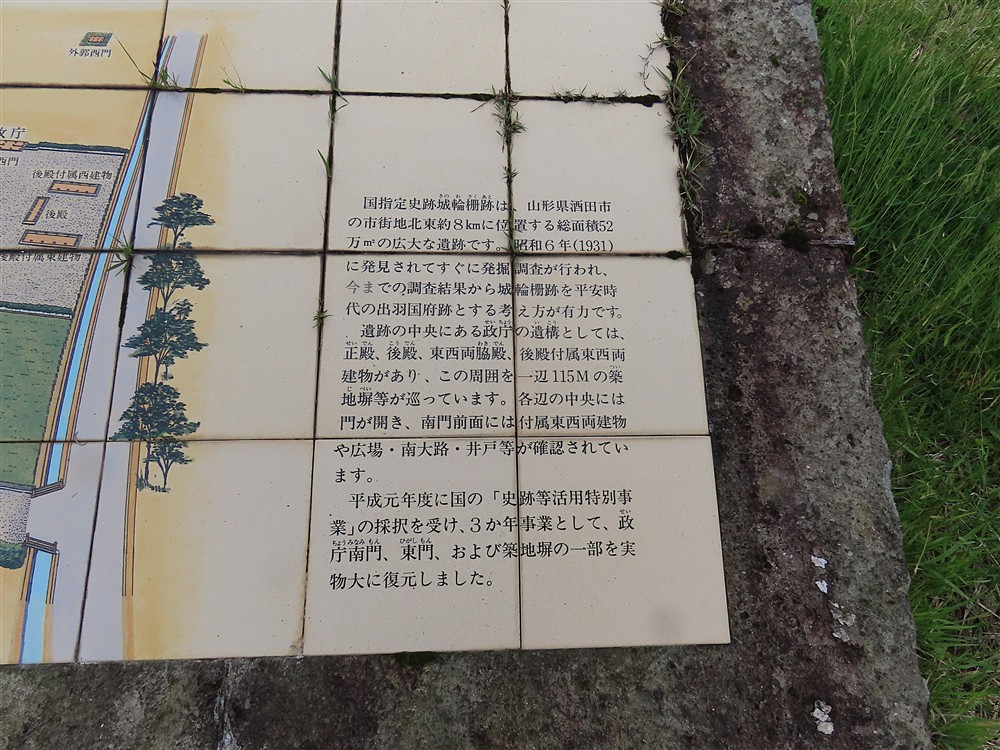 外郭西門
政庁
西門
後殿付属西建物
後殿
後殿付属東建物
国指定史跡城輪柵跡は、山形県酒田市
の市街地北東約8kmに位置する総面積52
万㎡の広大な遺跡です。昭和6年(1931)
に発見されてすぐに発掘調査が行われ、
今までの調査結果から城輪柵跡を平安時
代の出羽国府跡とする考え方が有力です。
遺跡の中央にある政庁の遺構としては、
正殿、後殿、東西両脇殿、後殿付属東西両
建物があり、この周囲を一辺115Mの築
地塀等が巡っています。各辺の中央には
門が開き、南門前面には付属東西両建物
や広場・南大路・井戸等が確認されてい
ます。
平成元年度に国の「史跡等活用特別事
業」の採択を受け、3か年事業として、政
庁南門、東門、および築地塀の一部を実
物大に復元しました。